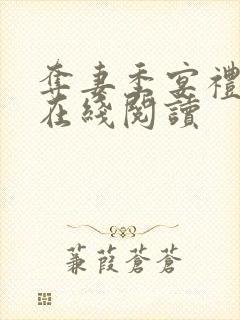 奪妻季宴禮
在綫閱讀
蒹葭蒼蒼